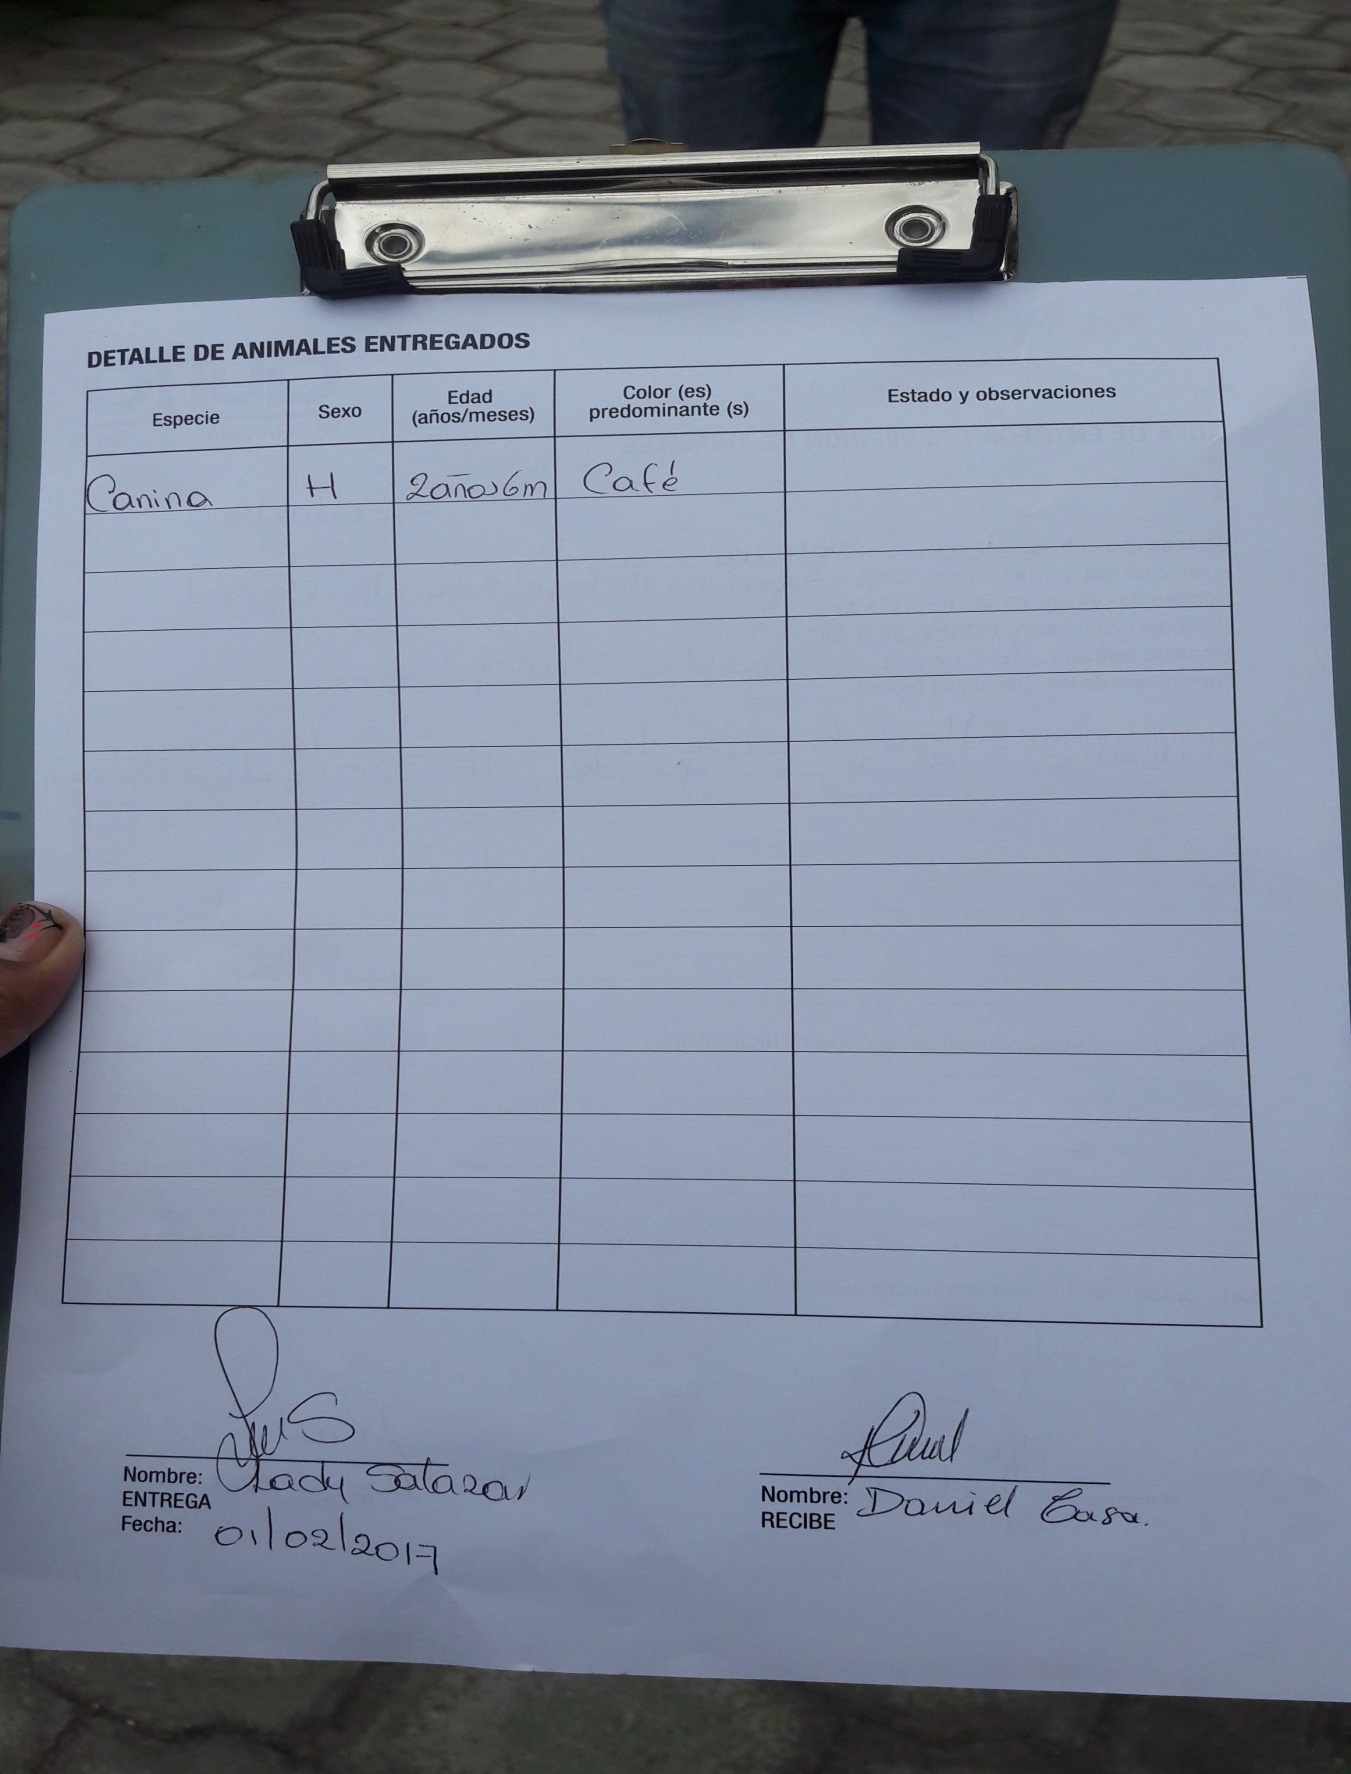 DETALLE DE ANIMALES ENTREGADOS
Especie Sexo Edad (años/meses) Color (es) predominante (s) Estado y observaciones
Canina H 2años6m Café
Nombre: Lady Salazar
ENTREGA
Fecha: 01/02/2017
Nombre: Daniel Casa.
RECIBE